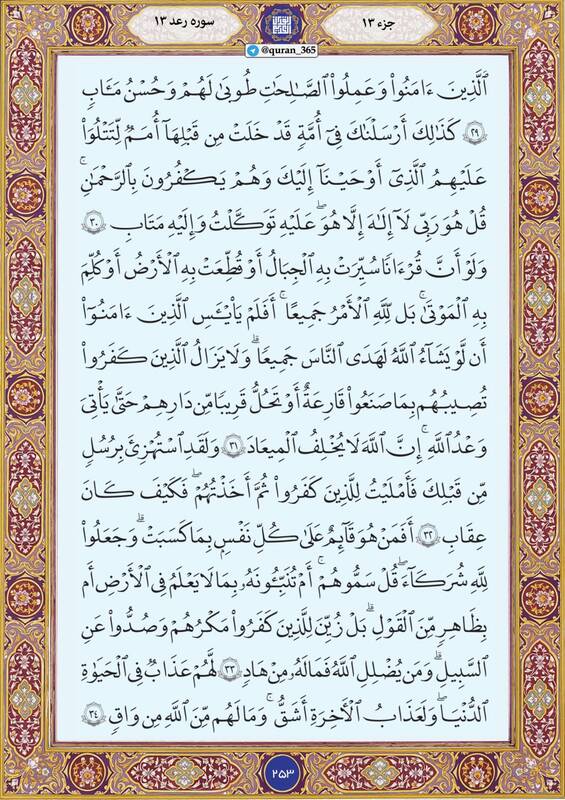 جزء ۱۳
سوره رعد ۱۳
@quran_365
ٱلَّذِينَ ءَامَنُوا۟ وَعَمِلُوا۟ ٱلصَّـٰلِحَـٰتِ طُوبَىٰ لَهُمْ وَحُسْنُ مَـَٔابٍ
۲۹ كَذَٰلِكَ أَرْسَلْنَـٰكَ فِىٓ أُمَّةٍ قَدْ خَلَتْ مِن قَبْلِهَآ أُمَمٌ لِّتَتْلُوَا۟
عَلَيْهِمُ ٱلَّذِىٓ أَوْحَيْنَآ إِلَيْكَ وَهُمْ يَكْفُرُونَ بِٱلرَّحْمَـٰنِ ۚ
قُلْ هُوَ رَبِّى لَآ إِلَـٰهَ إِلَّا هُوَ عَلَيْهِ تَوَكَّلْتُ وَإِلَيْهِ مَتَابِ ۳۰
وَلَوْ أَنَّ قُرْءَانًا سُيِّرَتْ بِهِ ٱلْجِبَالُ أَوْ قُطِّعَتْ بِهِ ٱلْأَرْضُ أَوْ كُلِّمَ
بِهِ ٱلْمَوْتَىٰ ۗ بَل لِّلَّهِ ٱلْأَمْرُ جَمِيعًا ۗ أَفَلَمْ يَا۟يْـَٔسِ ٱلَّذِينَ ءَامَنُوٓا۟
أَن لَّوْ يَشَآءُ ٱللَّهُ لَهَدَى ٱلنَّاسَ جَمِيعًا ۗ وَلَا يَزَالُ ٱلَّذِينَ كَفَرُوا۟
تُصِيبُهُم بِمَا صَنَعُوا۟ قَارِعَةٌ أَوْ تَحُلُّ قَرِيبًا مِّن دَارِهِمْ حَتَّىٰ يَأْتِىَ
وَعْدُ ٱللَّهِ ۚ إِنَّ ٱللَّهَ لَا يُخْلِفُ ٱلْمِيعَادَ ۳۱ وَلَقَدِ ٱسْتُهْزِئَ بِرُسُلٍ
مِّن قَبْلِكَ فَأَمْلَيْتُ لِلَّذِينَ كَفَرُوا۟ ثُمَّ أَخَذْتُهُمْ ۖ فَكَيْفَ كَانَ
عِقَابِ ۳۲ أَفَمَنْ هُوَ قَآئِمٌ عَلَىٰ كُلِّ نَفْسٍۭ بِمَا كَسَبَتْ ۗ وَجَعَلُوا۟
لِلَّهِ شُرَكَآءَ قُلْ سَمُّوهُمْ ۚ أَمْ تُنَبِّـُٔونَهُۥ بِمَا لَا يَعْلَمُ فِى ٱلْأَرْضِ أَم
بِظَـٰهِرٍ مِّنَ ٱلْقَوْلِ ۗ بَلْ زُيِّنَ لِلَّذِينَ كَفَرُوا۟ مَكْرُهُمْ وَصُدُّوا۟ عَنِ
ٱلسَّبِيلِ ۗ وَمَن يُضْلِلِ ٱللَّهُ فَمَا لَهُۥ مِنْ هَادٍ ۳۳ لَّهُمْ عَذَابٌ فِى ٱلْحَيَوٰةِ
ٱلدُّنْيَا ۖ وَلَعَذَابُ ٱلْـَٔاخِرَةِ أَشَقُّ ۖ وَمَا لَهُم مِّنَ ٱللَّهِ مِن وَاقٍ ۳۴
۲۵۳